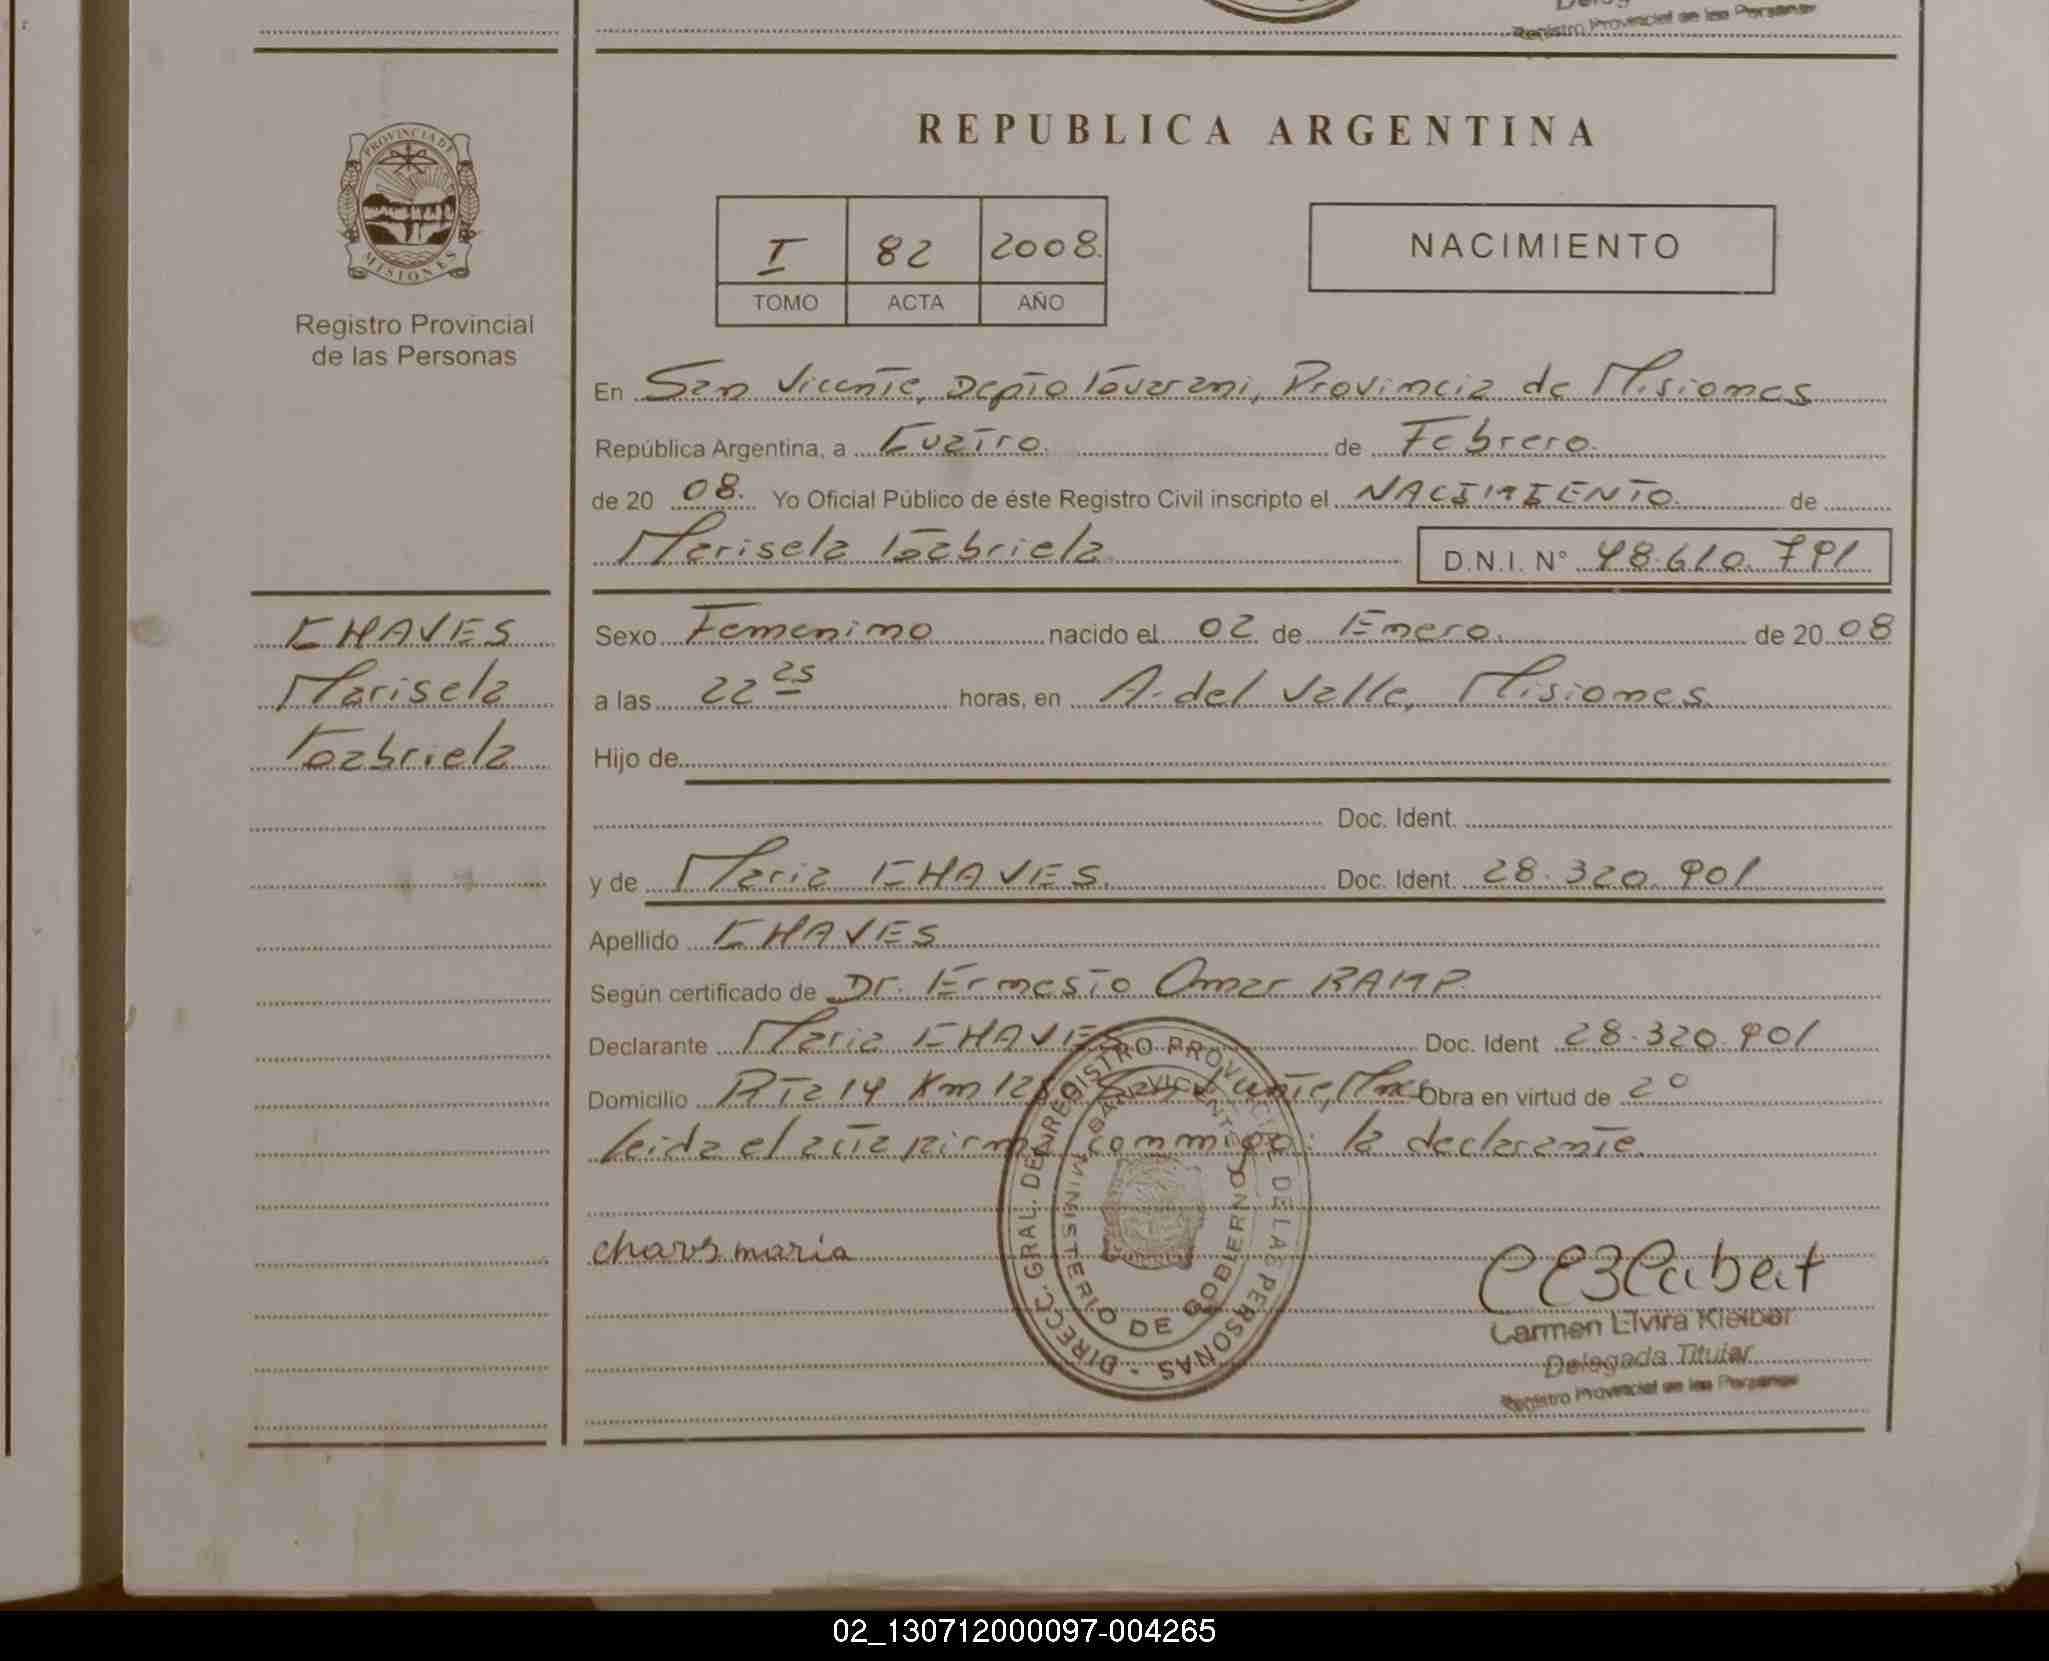 Registro Provincial de las Personas
PROVINCIA DE
MISIONES
Registro Provincial
de las Personas
REPUBLICA ARGENTINA
I 82 2008.
TOMO ACTA AÑO
NACIMIENTO
En San Vicente, Depto Guarani, Provincia de Misiones
República Argentina, a Cuatro. de Febrero.
de 20 08. Yo Oficial Público de éste Registro Civil inscripto el NACIMIENTO. de
Marisela Gabriela. D.N.I. N° 48.610.791
CHAVES
Marisela
Gabriela
Sexo Femenino nacido el 02 de Enero. de 20 08
a las 22 25 horas, en A. del Valle, Misiones.
Hijo de
Doc. Ident.
y de Maria CHAVES. Doc. Ident. 28.320.901
Apellido CHAVES
Según certificado de Dr. Ernesto Omar RAMP.
Declarante Maria CHAVES Doc. Ident 28.320.901
Domicilio Rta 14 Km 128 San Vicente, Mnes Obra en virtud de 2°
leida el acta firma conmigo: la declarante.
chaves maria
DIRECC. GRAL. DE REGISTRO PROVINCIAL DE LAS PERSONAS
SAN VICENTE
MINISTERIO DE GOBIERNO
Carmen Elvira Kleiber
Delegada Titular
Registro Provincial de las Personas
02_130712000097-004265